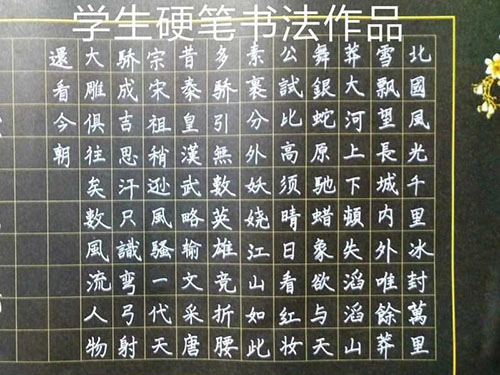 学生硬笔书法作品
北國風光千里冰封萬里
雪飄望長城內外唯餘莽
莽大河上下頓失滔滔山
舞銀蛇原馳蜡象欲与天
公試比高须晴日看紅妆
素裹分外妖娆江山如此
多驕引無數英雄竞折腰
昔秦皇漢武略輸文采唐
宗宋祖稍逊風騷一代天
驕成吉思汗只識弯弓射
大雕俱往矣數風流人物
還看今朝